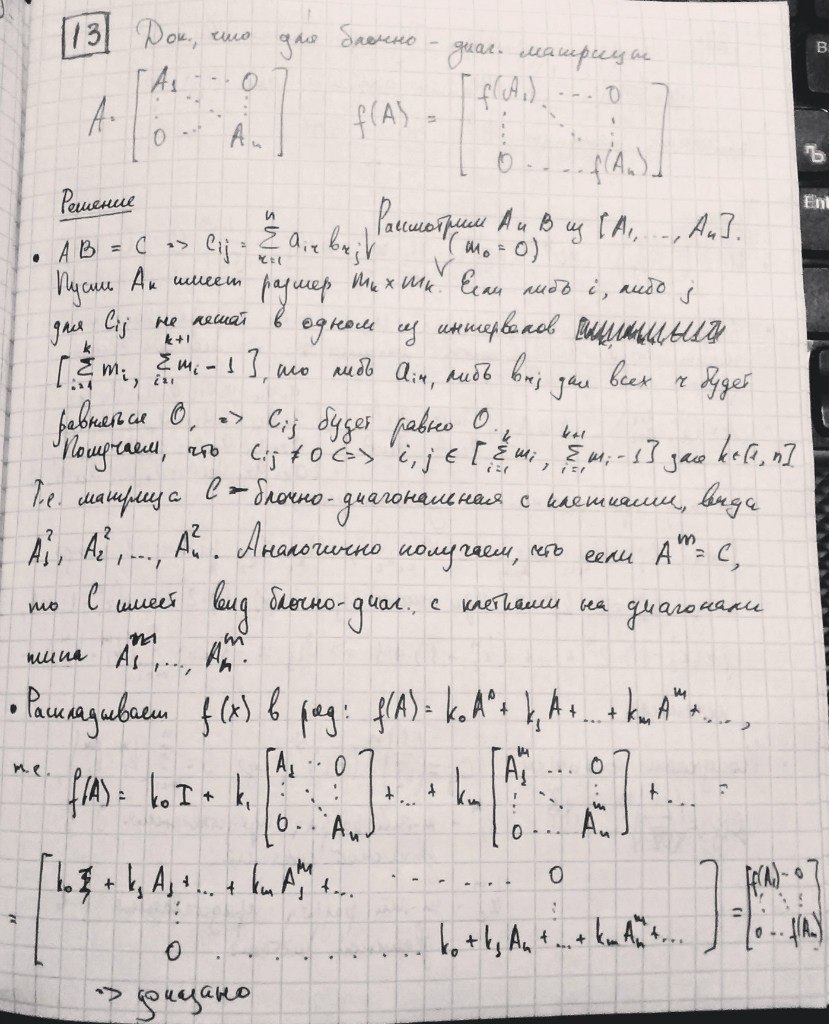 13 Док., что для блочно-диаг. матрицы
A = [A₁ ... 0 ; 0 ... Aₙ] f(A) = [f(A₁) ... 0 ; 0 ... f(Aₙ)]
Решение
Рассмотрим A и B из [A₁, ..., Aₙ].
• AB = C => Cᵢⱼ = Σ_{r=1}^{n} aᵢᵣ bᵣⱼ (m₀ = 0)
Пусть Aₖ имеет размер mₖ × mₖ. Если либо i, либо j
для Cᵢⱼ не лежат в одном из интервалов
[Σ_{i=1}^{k} mᵢ, Σ_{i=1}^{k+1} mᵢ - 1], то либо aᵢᵣ, либо bᵣⱼ для всех r будет
равняться 0, => Cᵢⱼ будет равно 0.
Получаем, что Cᵢⱼ ≠ 0 <=> i, j ∈ [Σ_{i=1}^{k} mᵢ, Σ_{i=1}^{k+1} mᵢ - 1] для k∈[1, n]
Т.е. матрица C - блочно-диагональная с клетками, вида
A₁², A₂², ..., Aₙ². Аналогично получаем, что если Aᵐ = C,
то C имеет вид блочно-диаг., с клетками на диагонали
типа A₁ᵐ, ..., Aₙᵐ.
• Раскладываем f(x) в ряд: f(A) = k₀A⁰ + k₁A + ... + kₘAᵐ + ...,
т.е. f(A) = k₀I + k₁ [A₁ ... 0 ; 0 ... Aₙ] + ... + kₘ [A₁ᵐ ... 0 ; 0 ... Aₙᵐ] + ... =
= [k₀ + k₁A₁ + ... + kₘA₁ᵐ + ... ... 0 ; 0 ... k₀ + k₁Aₙ + ... + kₘAₙᵐ + ...] = [f(A₁) ... 0 ; 0 ... f(Aₙ)]
=> доказано
Ъ
Ent